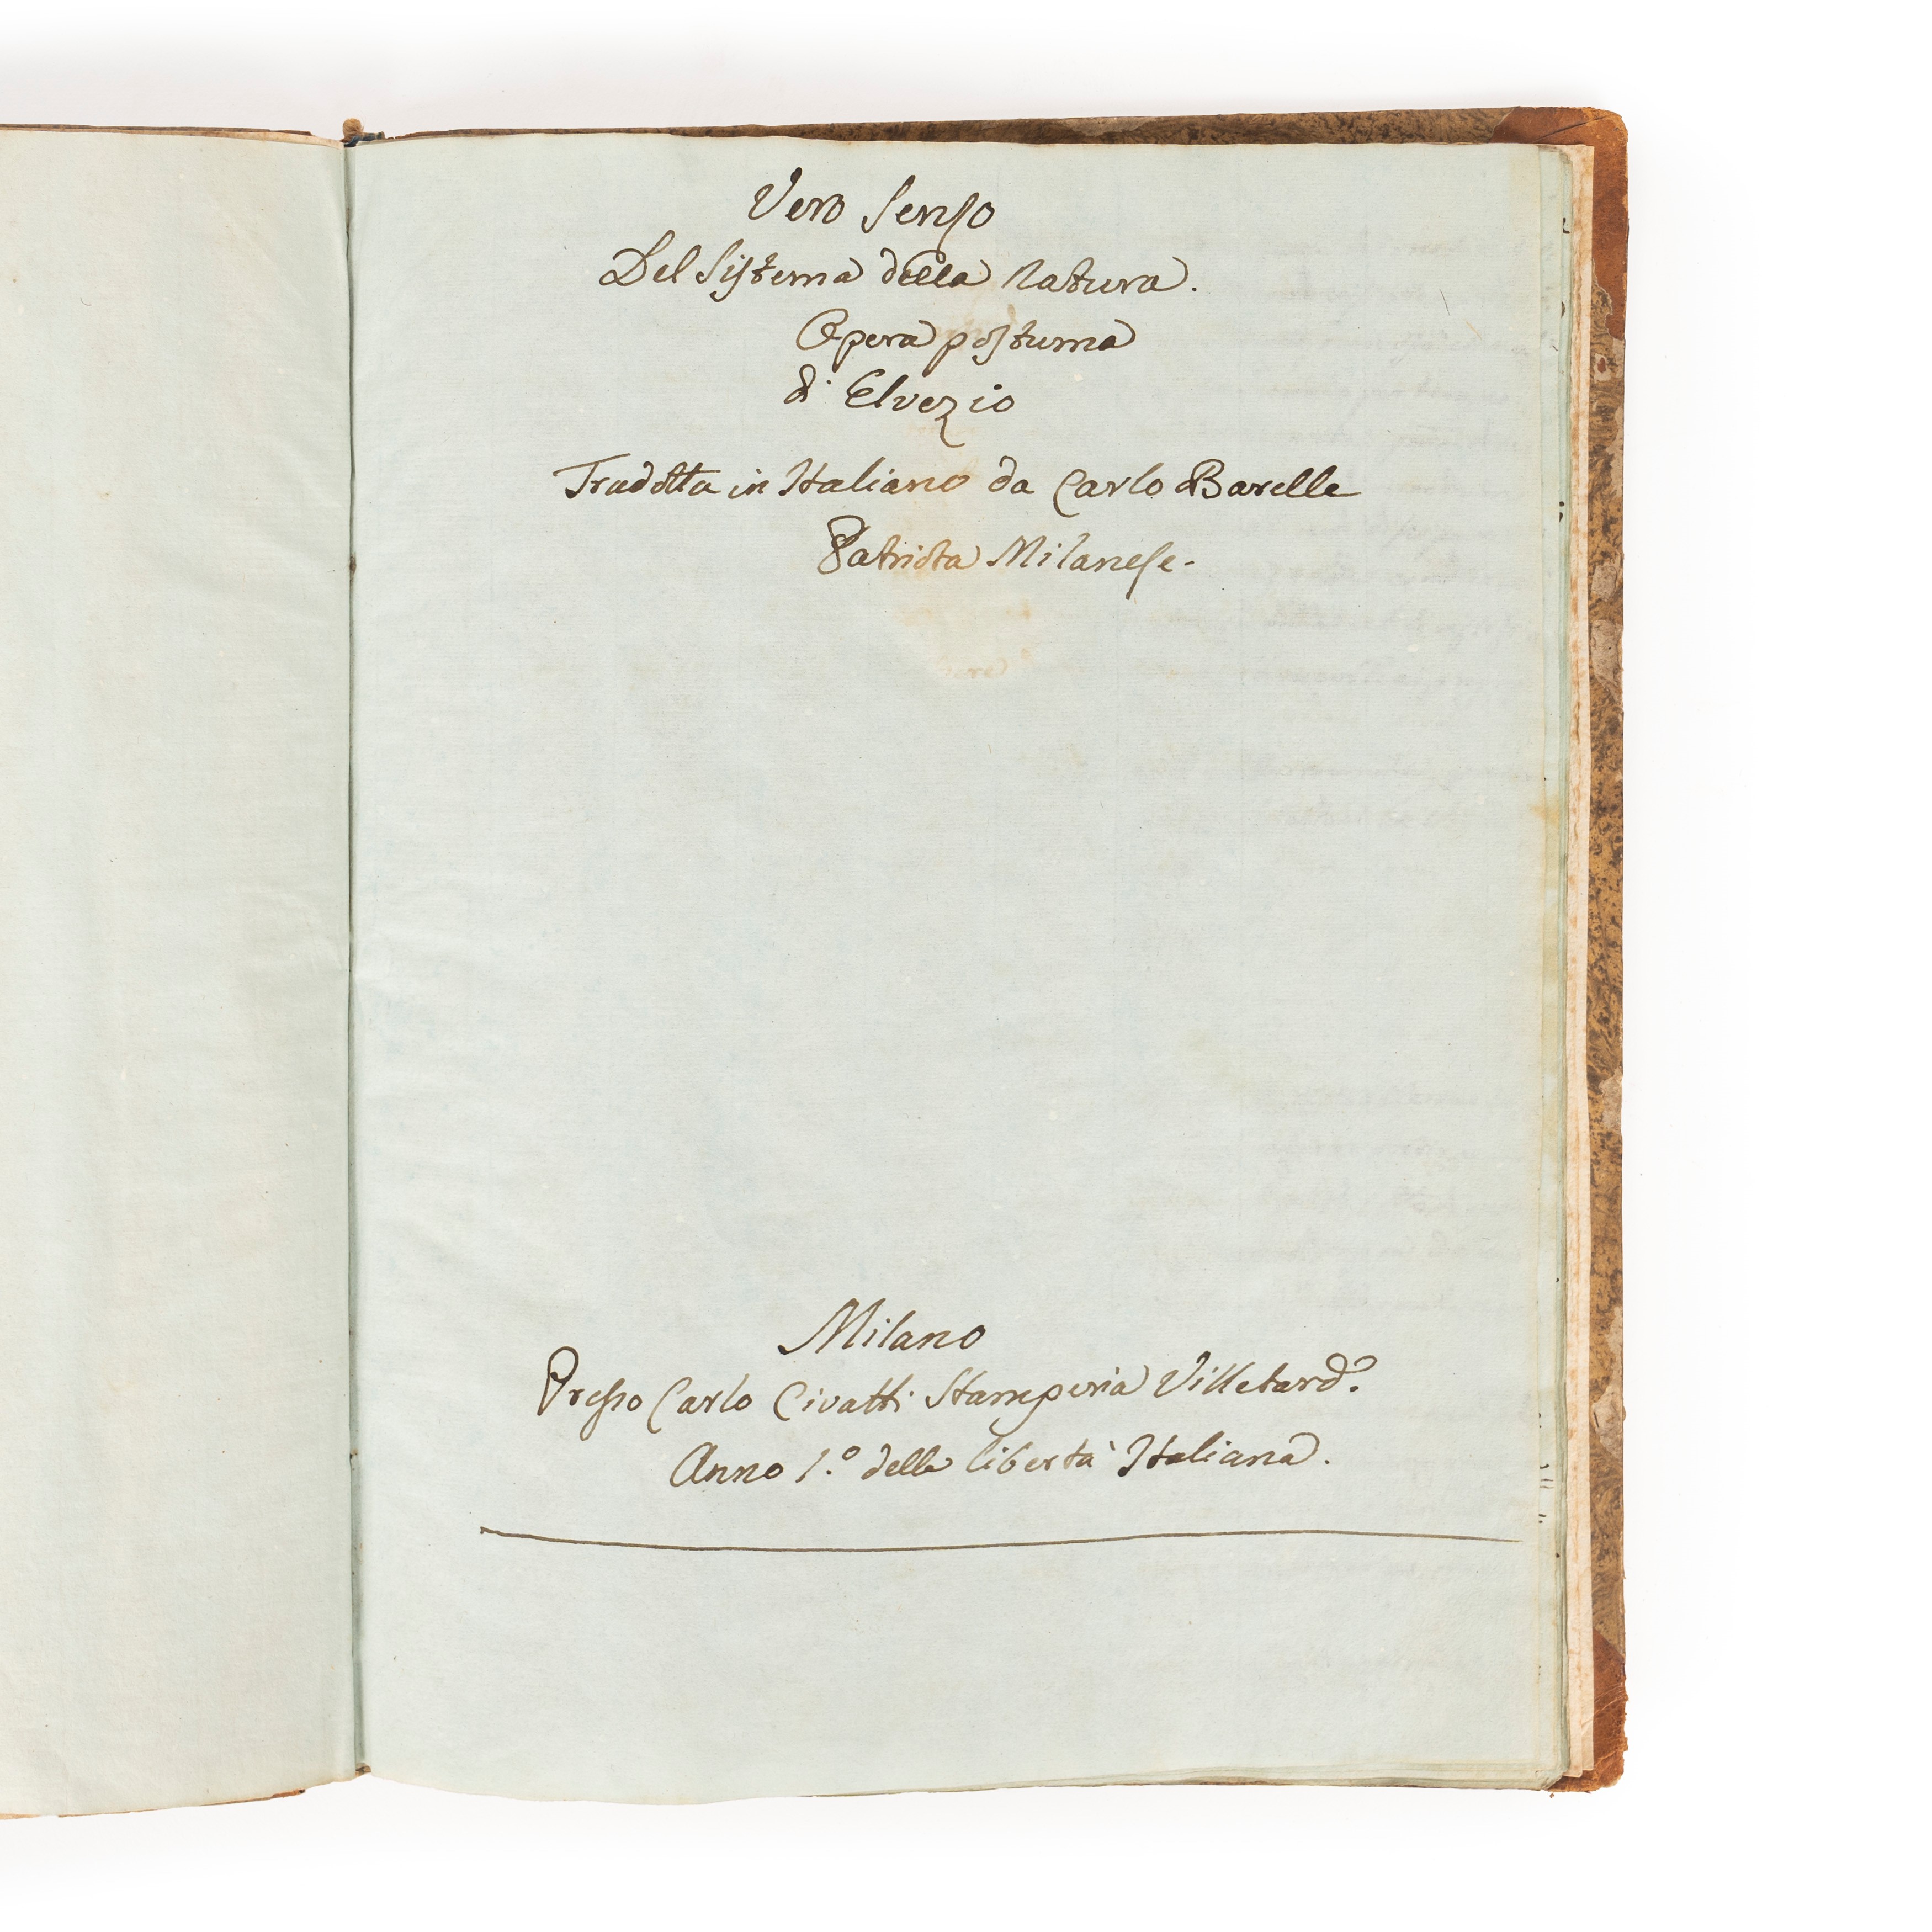 Vero Senso
Del Sistema della Natura.
Opera postuma
di Elvezio
Tradotta in Italiano da Carlo Barelle
Patriota Milanese.
Milano
Presso Carlo Civatti Stamperia Villetard.
Anno 1.º della libertà Italiana.